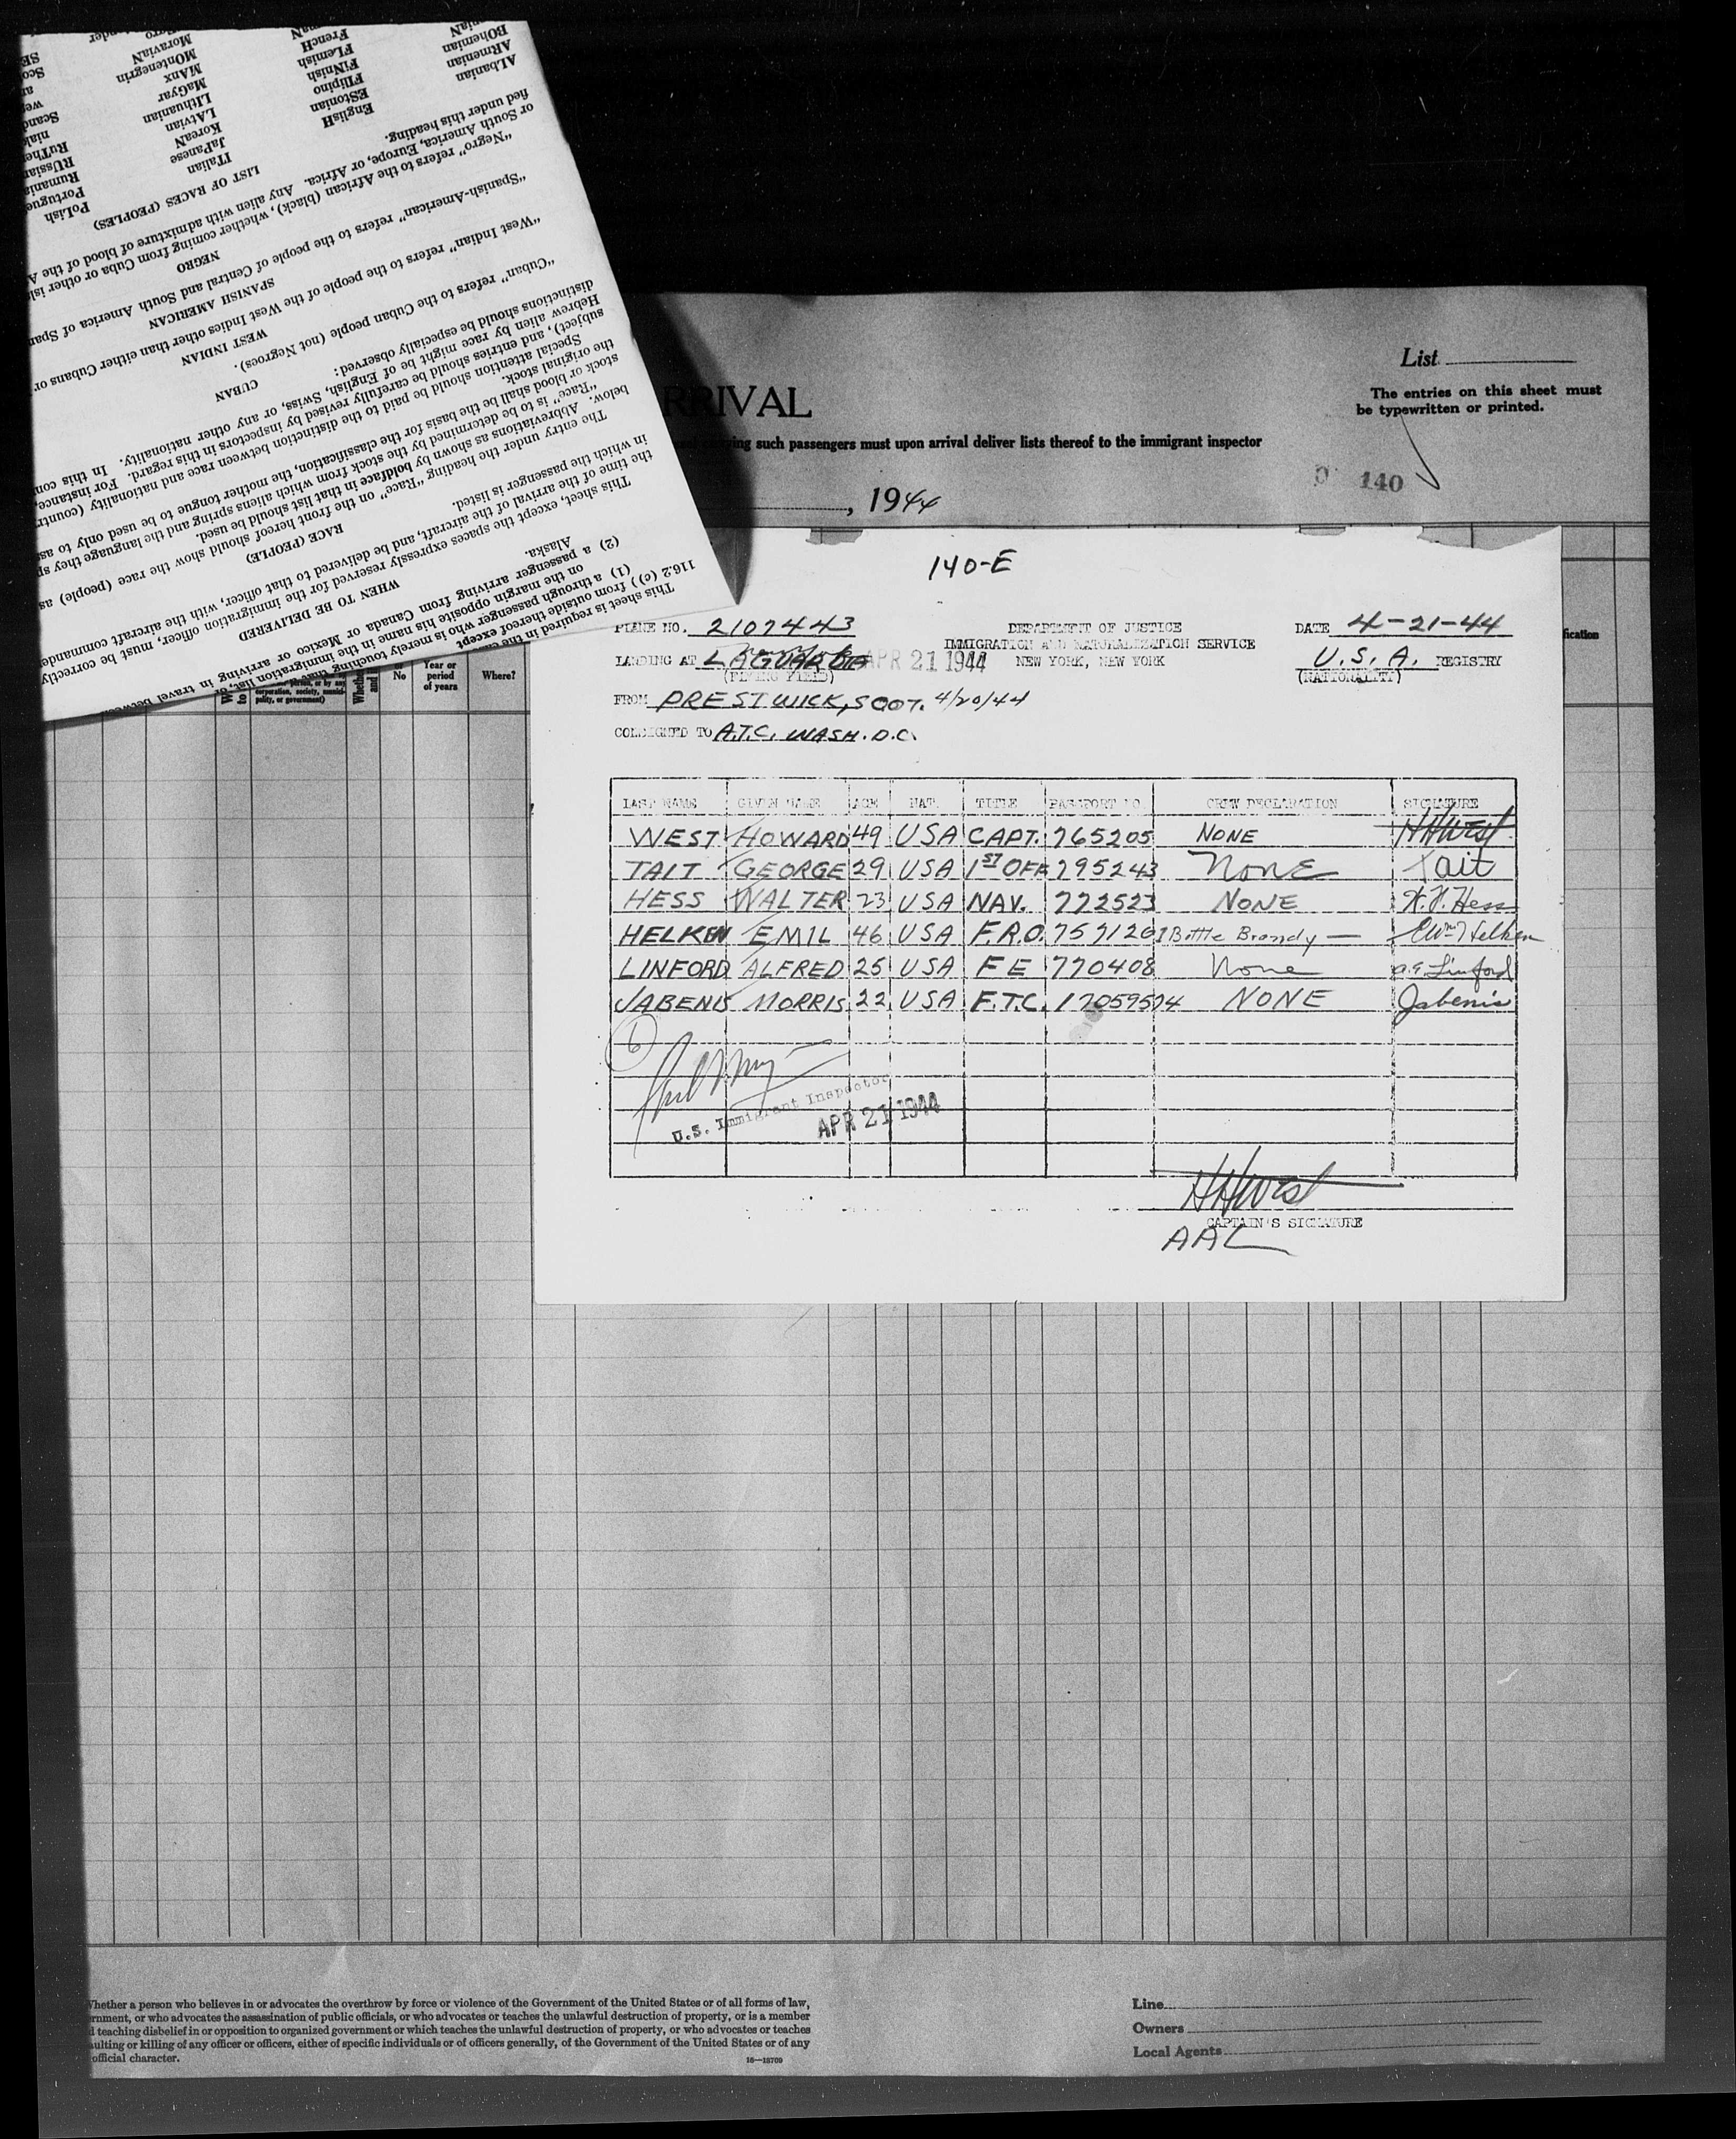 List
The entries on this sheet must
be typewritten or printed.
RRIVAL
such passengers must upon arrival deliver lists thereof to the immigrant inspector
, 1944
140
140-E
PLANE NO. 2107443
DEPARTMENT OF JUSTICE
IMMIGRATION AND NATURALIZATION SERVICE
NEW YORK, NEW YORK
DATE 4-21-44
LANDING AT LAGUARDIA APR 21 1944
(FLYING FIELD)
U.S.A. REGISTRY
(NATIONALITY)
FROM PRESTWICK, SCOT. 4/20/44
CONSIGNED TO A.T.C. WASH. D.C.
LAST NAME GIVEN NAME AGE NAT. TITLE PASSPORT NO. CREW DECLARATION SIGNATURE
WEST HOWARD 49 USA CAPT. 765205 NONE HHWest
TAIT GEORGE 29 USA 1ST OFF 795243 None Tait
HESS WALTER 23 USA NAV. 772523 NONE W.H. Hess
HELKEN EMIL 46 USA F.R.O. 759126 1 Bottle Brandy — EWm Helken
LINFORD ALFRED 25 USA F E 770408 None A.E. Linford
JABENIS MORRIS 22 USA F.T.C. 17059574 NONE Jabenis
6
U.S. Immigrant Inspector
APR 21 1944
HHWest
CAPTAIN'S SIGNATURE
AAL
fication
No
Year or
period
of years
Where?
corporation, society, munici-
pality, or government)
116.2 (c)) from outside thereof except
(1) a through passenger who is merely touching
on the margin opposite his name in the immigration list,
(2) a passenger arriving from Canada or Mexico or arriving in travel
Alaska.
WHEN TO BE DELIVERED
This sheet, except the spaces expressly reserved for the immigration officer, must be correctly
the time of the arrival of the aircraft, and be delivered to that officer, with the aircraft commander
in which the passenger is listed.
RACE (PEOPLE)
The entry under the heading "Race" on the front hereof should show the race (people) as
below. Abbreviations as shown by boldface in that list should be used.
"Race" is to be determined by the stock from which aliens spring and the language they sp
stock or blood shall be the basis for the classification, the mother tongue to be used only to as
the original stock.
Special attention should be paid to the distinction between race and nationality (country
subject), and entries should be carefully revised by inspectors in this regard. For instance,
Hebrew alien by race might be of English, Swiss, or any other nationality. In this con
distinctions should be especially observed:
CUBAN
"Cuban" refers to the Cuban people (not Negroes).
WEST INDIAN
"West Indian" refers to the people of the West Indies other than either Cubans or
SPANISH AMERICAN
"Spanish-American" refers to the people of Central and South America of Span
NEGRO
"Negro" refers to the African (black), whether coming from Cuba or other isl
or South America, Europe, or Africa. Any alien with admixture of blood of the A
fied under this heading.
LIST OF RACES (PEOPLES)
ALbanian
ARmenian
BOhemian
EnglisH
EStonian
FIlipino
FiNnish
FLemish
FrencH
ITalian
JaPanese
KoreaN
LAtvian
LIthuanian
MaGyar
MAnx
MOntenegrin
MoraviaN
PoLish
Portugue
Rumania
RUssian
RuThe
niak
Scand
Whether a person who believes in or advocates the overthrow by force or violence of the Government of the United States or of all forms of law,
ernment, or who advocates the assassination of public officials, or who advocates or teaches the unlawful destruction of property, or is a member
d teaching disbelief in or opposition to organized government or which teaches the unlawful destruction of property, or who advocates or teaches
aulting or killing of any officer or officers, either of specific individuals or of officers generally, of the Government of the United States or of any
official character.
16—18709
Line
Owners
Local Agents